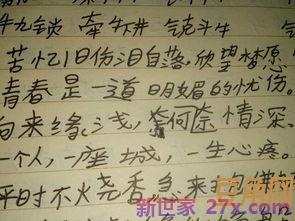 牛九锁 牵牛 斗牛
苦忆旧伤泪自落,欣望梦愿
青春是一道明媚的忧伤。
向来缘浅,奈何奈情深。
一个人,一座城,一生心疼。
平时不火烧香,急来
新世家 27x.com